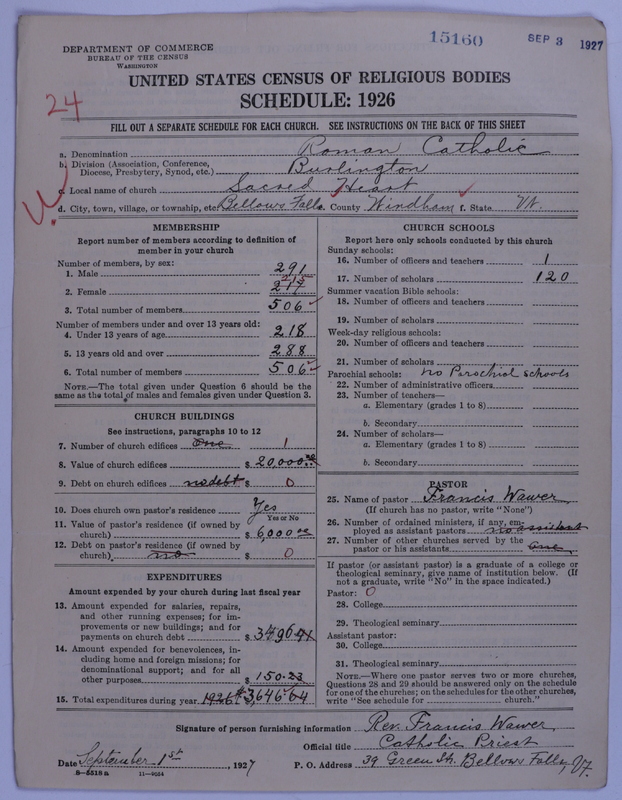 15160
SEP 3 1927
DEPARTMENT OF COMMERCE
BUREAU OF THE CENSUS
WASHINGTON
UNITED STATES CENSUS OF RELIGIOUS BODIES
SCHEDULE: 1926
24
FILL OUT A SEPARATE SCHEDULE FOR EACH CHURCH. SEE INSTRUCTIONS ON THE BACK OF THIS SHEET
a. Denomination Roman Catholic
b. Division (Association, Conference,
Diocese, Presbytery, Synod, etc.) Burlington
c. Local name of church Sacred Heart
d. City, town, village, or township, etc. Bellows Falls e. County Windham f. State Vt.
MEMBERSHIP
Report number of members according to definition of
member in your church
Number of members, by sex:
1. Male 291
2. Female 215
3. Total number of members 506
Number of members under and over 13 years old:
4. Under 13 years of age 218
5. 13 years old and over 288
6. Total number of members 506
NOTE.—The total given under Question 6 should be the
same as the total of males and females given under Question 3.
CHURCH BUILDINGS
See instructions, paragraphs 10 to 12
7. Number of church edifices One 1
8. Value of church edifices $ 20,000.00
9. Debt on church edifices no debt $ 0
10. Does church own pastor's residence Yes
Yes or No
11. Value of pastor's residence (if owned by
church) $ 6,000.00
12. Debt on pastor's residence (if owned by
church) no $ 0
EXPENDITURES
Amount expended by your church during last fiscal year
13. Amount expended for salaries, repairs,
and other running expenses; for im-
provements or new buildings; and for
payments on church debt $ 3496.41
14. Amount expended for benevolences, in-
cluding home and foreign missions; for
denominational support; and for all
other purposes $ 150.23
15. Total expenditures during year 1926 $ 3,646.64
CHURCH SCHOOLS
Report here only schools conducted by this church
Sunday schools:
16. Number of officers and teachers 1
17. Number of scholars 120
Summer vacation Bible schools:
18. Number of officers and teachers
19. Number of scholars
Week-day religious schools:
20. Number of officers and teachers
21. Number of scholars
Parochial schools: no Parochial schools
22. Number of administrative officers
23. Number of teachers—
a. Elementary (grades 1 to 8)
b. Secondary
24. Number of scholars—
a. Elementary (grades 1 to 8)
b. Secondary
PASTOR
25. Name of pastor Francis Wawer
(If church has no pastor, write "None")
26. Number of ordained ministers, if any, em-
ployed as assistant pastors no assistant
27. Number of other churches served by the
pastor or his assistants One
If pastor (or assistant pastor) is a graduate of a college or
theological seminary, give name of institution below. (If
not a graduate, write "No" in the space indicated.)
Pastor: 0
28. College
29. Theological seminary
Assistant pastor:
30. College
31. Theological seminary
NOTE.—Where one pastor serves two or more churches,
Questions 28 and 29 should be answered only on the schedule
for one of the churches; on the schedules for the other churches,
write "See schedule for church."
Signature of person furnishing information Rev. Francis Wawer
Official title Catholic Priest
Date September 1st, 1927 P. O. Address 39 Green St. Bellows Falls, Vt.
8-5518a 11-9054